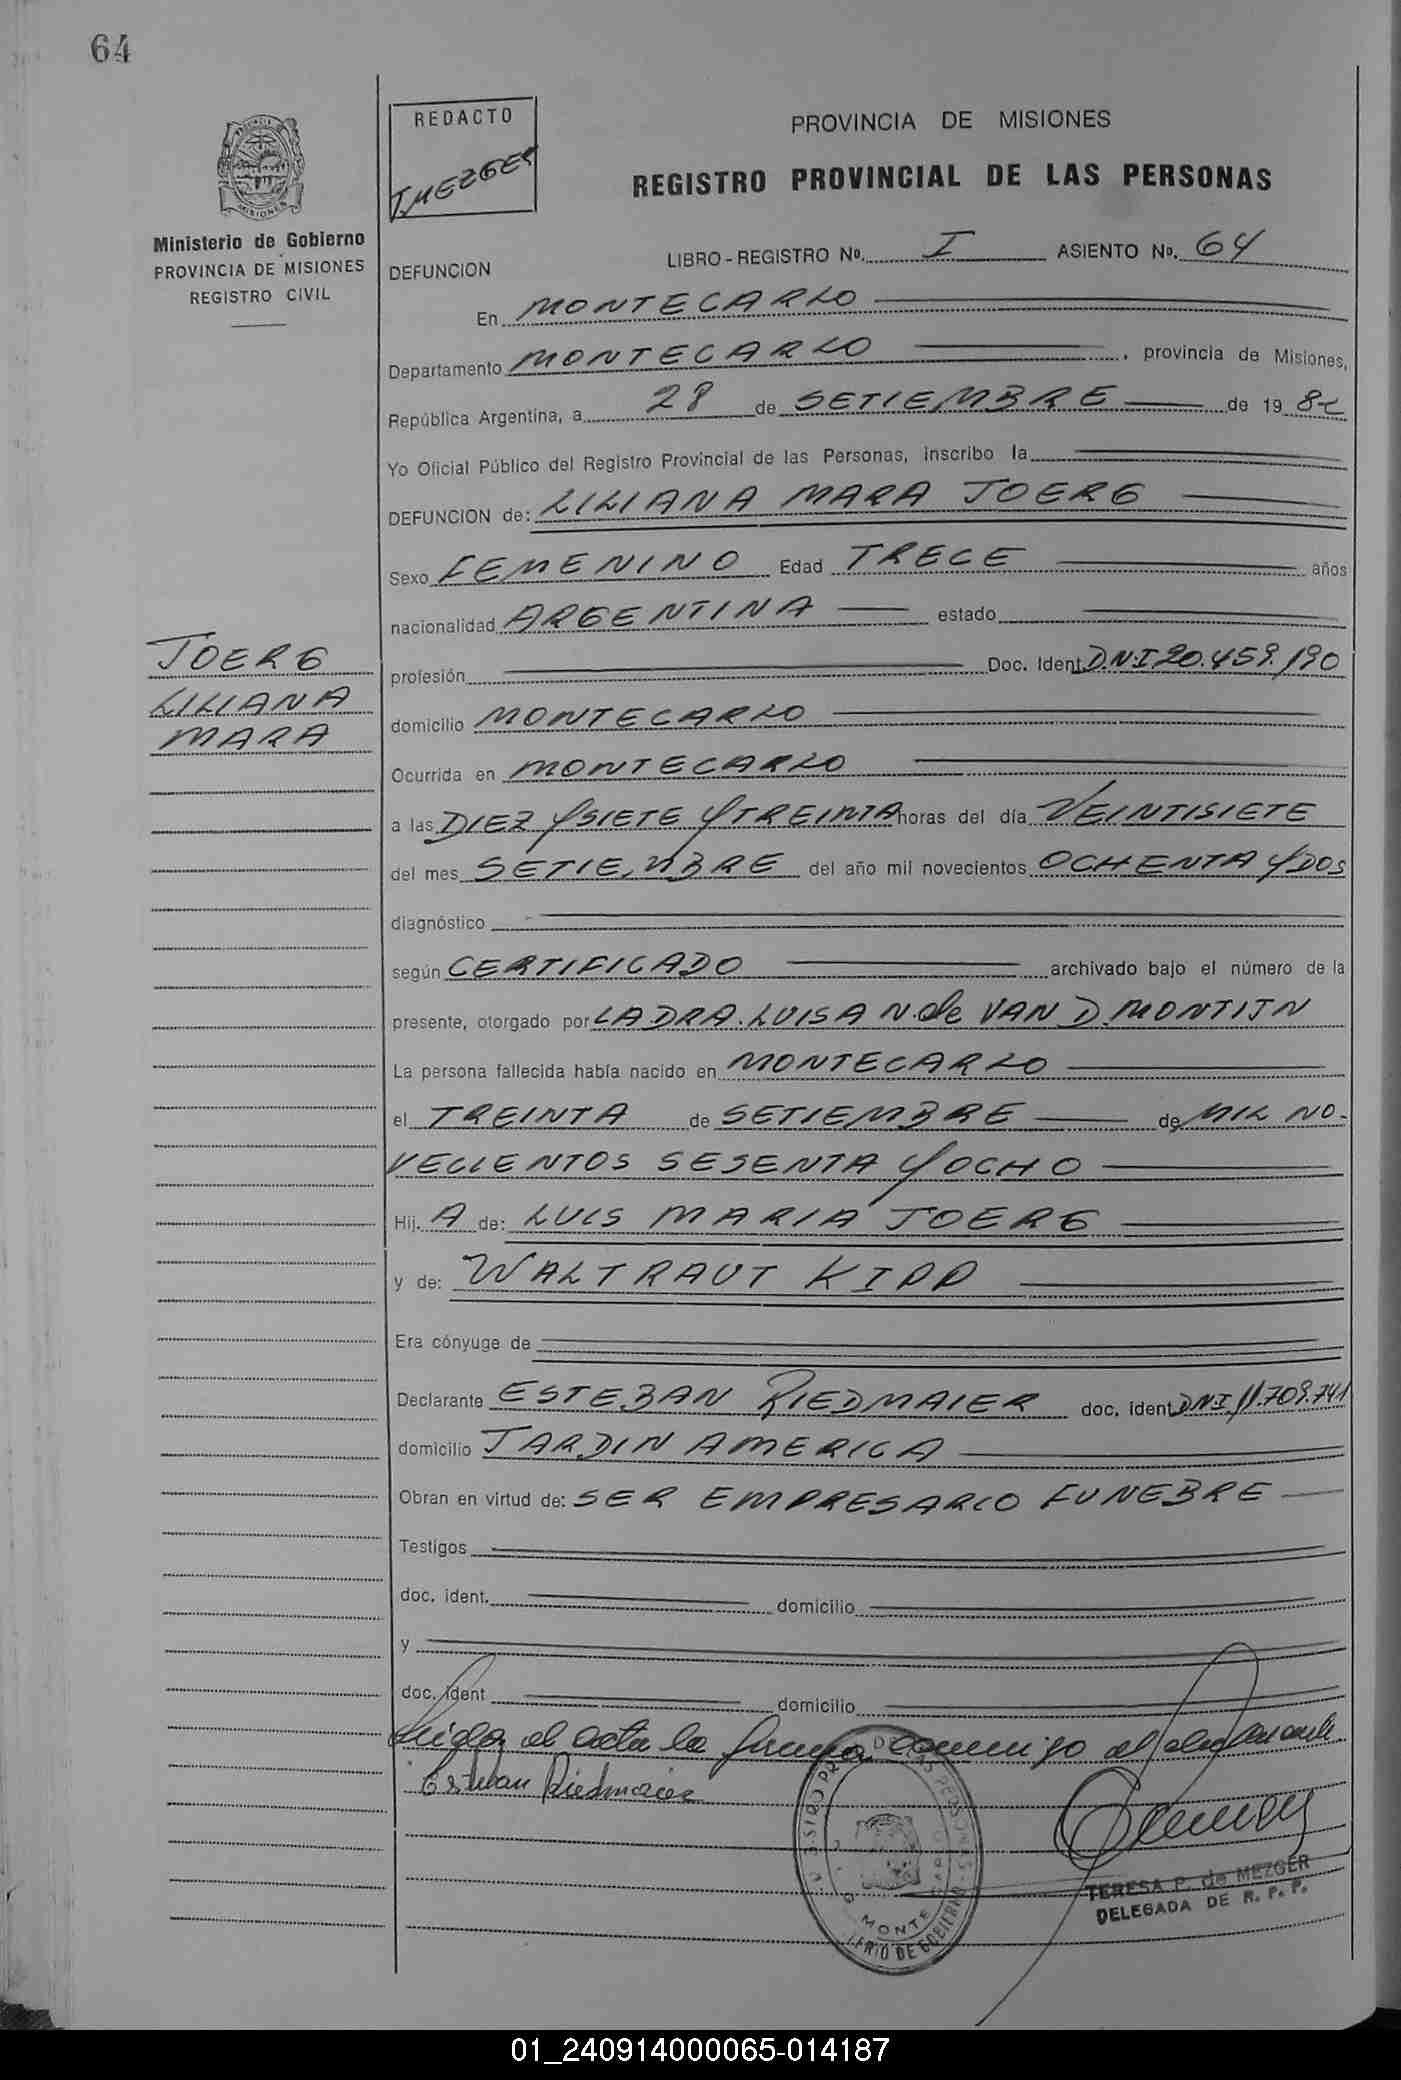 64
REDACTO
T. MEZGER
PROVINCIA DE MISIONES
REGISTRO PROVINCIAL DE LAS PERSONAS
MISIONES
Ministerio de Gobierno
PROVINCIA DE MISIONES
REGISTRO CIVIL
DEFUNCION
LIBRO - REGISTRO Nº. I ASIENTO Nº. 64
En MONTECARLO
Departamento MONTECARLO , provincia de Misiones,
República Argentina, a 28 de SETIEMBRE de 19 82
Yo Oficial Público del Registro Provincial de las Personas, inscribo la
DEFUNCION de: LILIANA MARA JOERG
Sexo FEMENINO Edad TRECE años
nacionalidad ARGENTINA estado
JOERG
LILIANA
MARA
profesión Doc. Ident. D.N.I 20.459.190
domicilio MONTECARLO
Ocurrida en MONTECARLO
a las DIEZ Y SIETE Y TREINTA horas del día VEINTISIETE
del mes SETIEMBRE del año mil novecientos OCHENTA Y DOS
diagnóstico
según CERTIFICADO archivado bajo el número de la
presente, otorgado por LA DRA. LUISA N. de VAN D. MONTIJN
La persona fallecida había nacido en MONTECARLO
el TREINTA de SETIEMBRE de MIL NO-
VECIENTOS SESENTA Y OCHO
Hij. A de: LUIS MARIA JOERG
y de: WALTRAUT KIDD
Era cónyuge de
Declarante ESTEBAN RIEDMAIER doc. ident. DNI 11.709.741
domicilio JARDIN AMERICA
Obran en virtud de: SER EMPRESARIO FUNEBRE
Testigos
doc. ident. domicilio
y
doc. ident domicilio
Leida el acta la firma conmigo el declarante
Esteban Riedmaier
MONTE
TERESA P. de MEZGER
DELEGADA DE R. P. P.
01_240914000065-014187